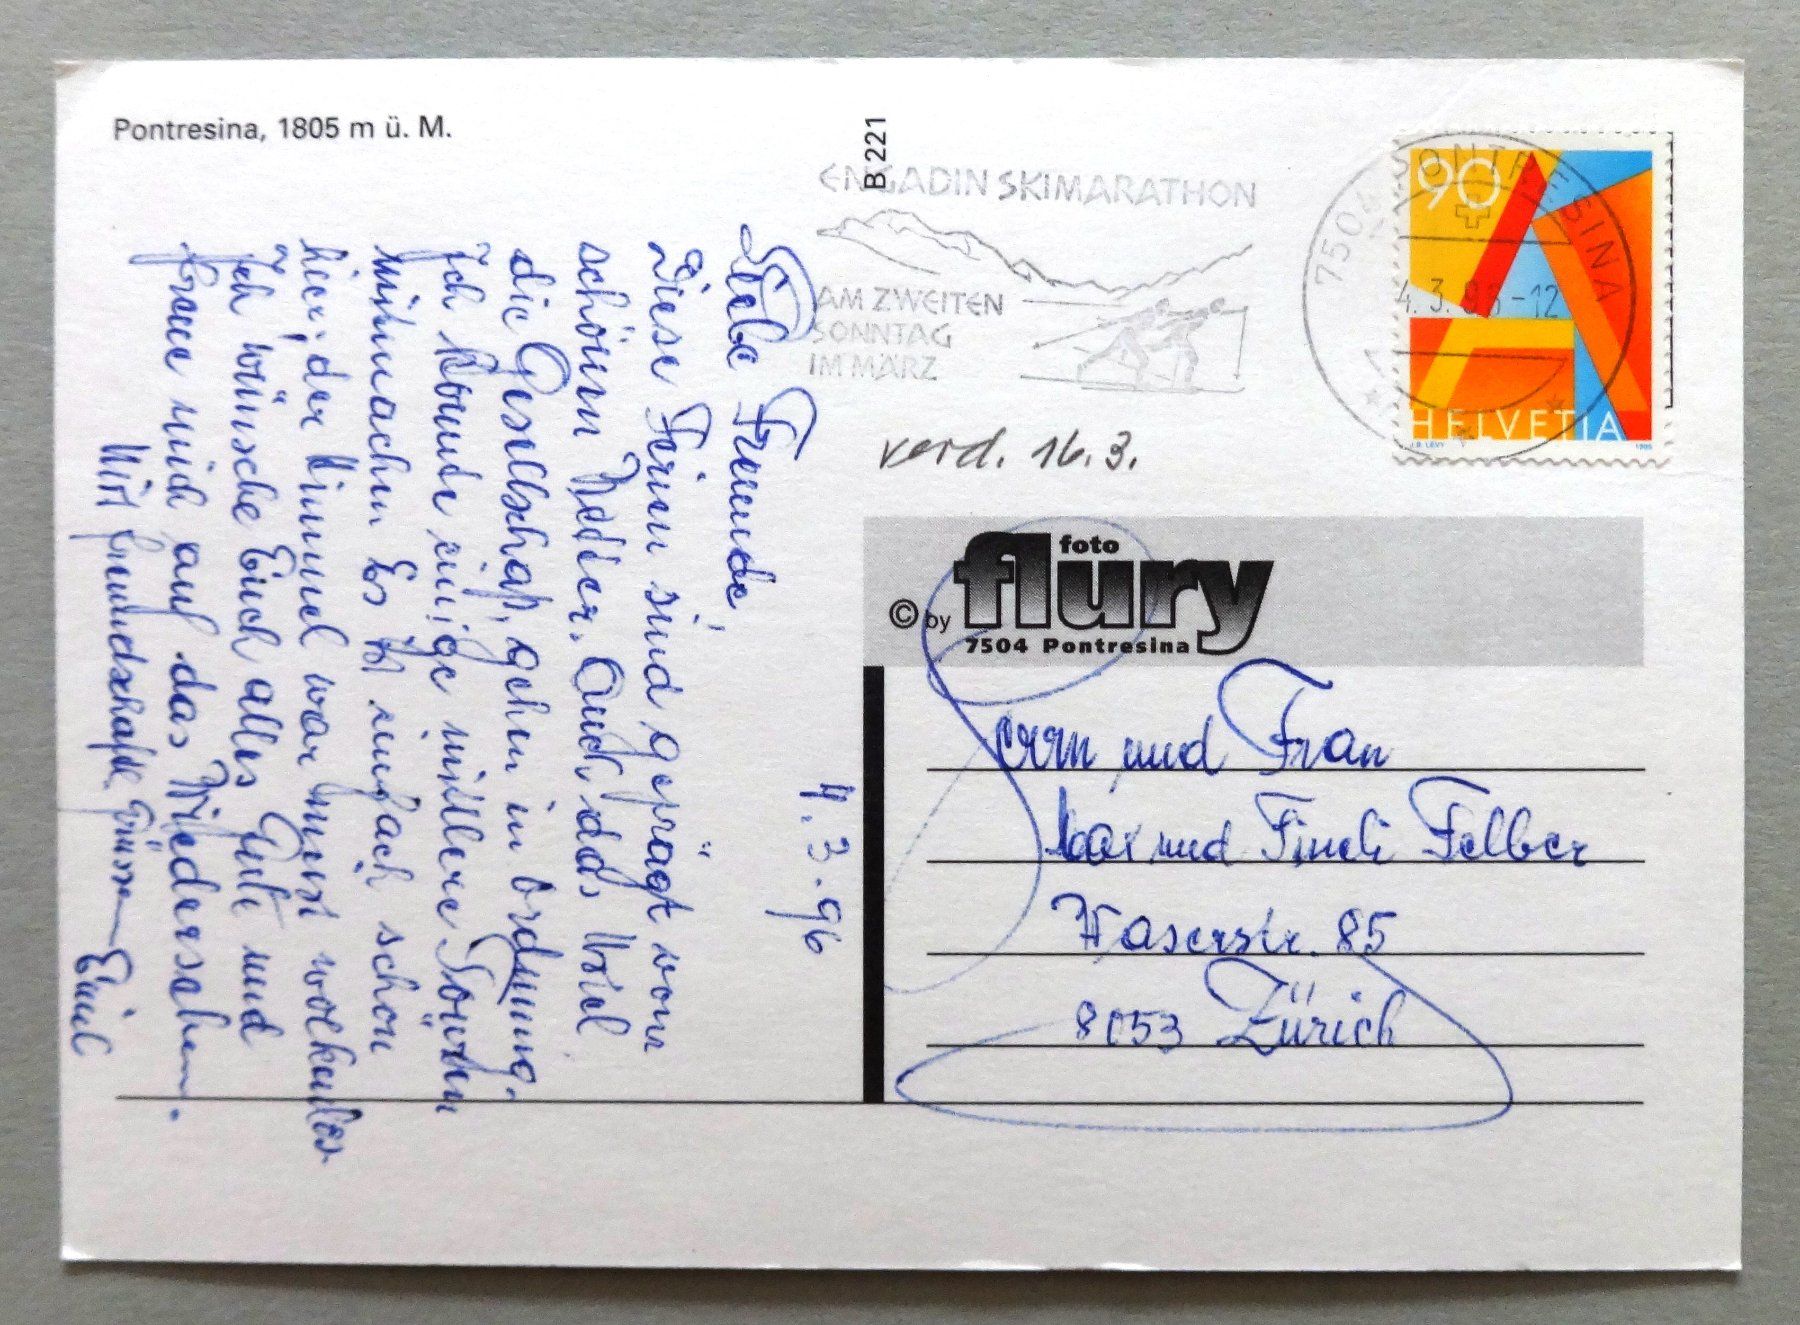 Pontresina, 1805 m ü. M.
B 221
ENGADIN SKIMARATHON
AM ZWEITEN
SONNTAG
IM MÄRZ
7504 PONTRESINA
4.3.96-12
90
HELVETIA
J.B. LEVY
1995
verd. 16.3.
© by foto flury
7504 Pontresina
Herrn und Frau
Max und Findi Felber
Waserstr. 85
8053 Zürich
4.3.96
Liebe Freunde,
Diese Ferien sind geprägt vom
schönen Wetter. Auch das Hotel
die Gesellschaft, gehen in Ordnung.
Ich konnte einige mittlere Touren
mitmachen. Es ist einfach schön
hier; der Himmel war meist wolkenlos
Ich wünsche Euch alles Gute und
freue mich auf das Wiedersehen.
Mit freundschaftl. Grüssen Emil